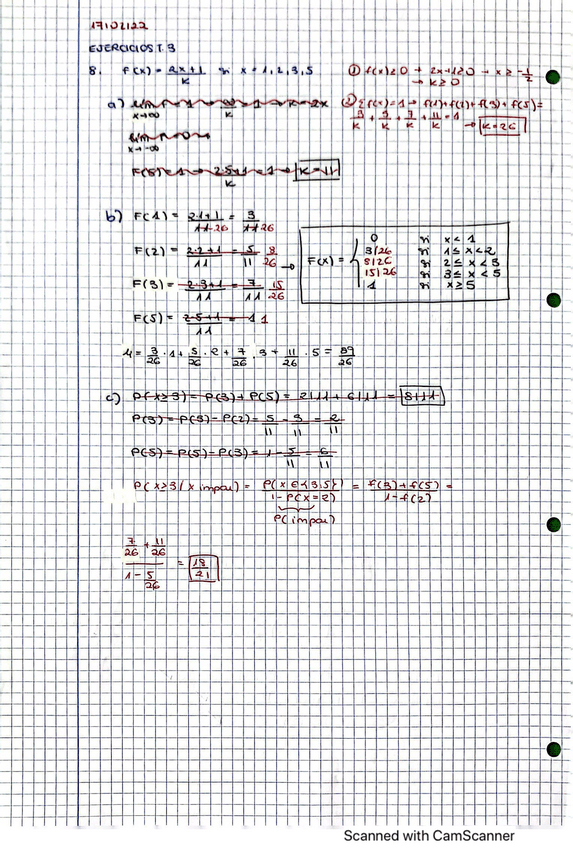 17/02/22
EJERCICIOS T.3
8. f(x) = 2x+1/k si x = 1,2,3,5
① f(x) ≥ 0 → 2x+1 ≥ 0 → x ≥ -1/2
→ k ≥ 0
a)
x→∞
② Σ f(x) = 1 → f(1)+f(2)+f(3)+f(5) =
3/k + 5/k + 7/k + 11/k = 1
→ k = 26
x→-∞
F(5) = 1 → 2·5+1/k = 1 → k = 11
b) F(1) = 2·1+1/11 26 = 3/11 26
F(2) = 2·2+1/11 = 5/11 8/26
F(3) = 2·3+1/11 = 7/11 15/26
F(5) = 2·5+1/11 = 1 1
→ F(x) = {
0 si x < 1
3/26 si 1 ≤ x < 2
8/26 si 2 ≤ x < 3
15/26 si 3 ≤ x < 5
1 si x ≥ 5
μ = 3/26 · 1 + 5/26 · 2 + 7/26 · 3 + 11/26 · 5 = 89/26
c) P(x≥3) = P(3) + P(5) = 2/11 + 6/11 = 8/11
P(3) = P(3) - P(2) = 5/11 - 3/11 = 2/11
P(5) = P(5) - P(3) = 1 - 5/11 = 6/11
P(x≥3 / x impar) = P(x ∈ {3,5})/1-P(x=2) = f(3)+f(5)/1-f(2) =
P(impar)
7/26 + 11/26 / 1 - 5/26 = 18/21
Scanned with CamScanner